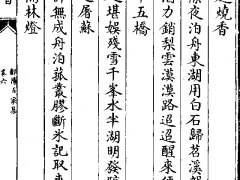 燒香
除夜泊舟東湖用白石歸苕溪
力銷梨雲漠漠路迢迢醒來
五橋
堪娛殘雪千峯水半湖明發
屠蘇
無成舟泊菰膠斷氷記取
林燈